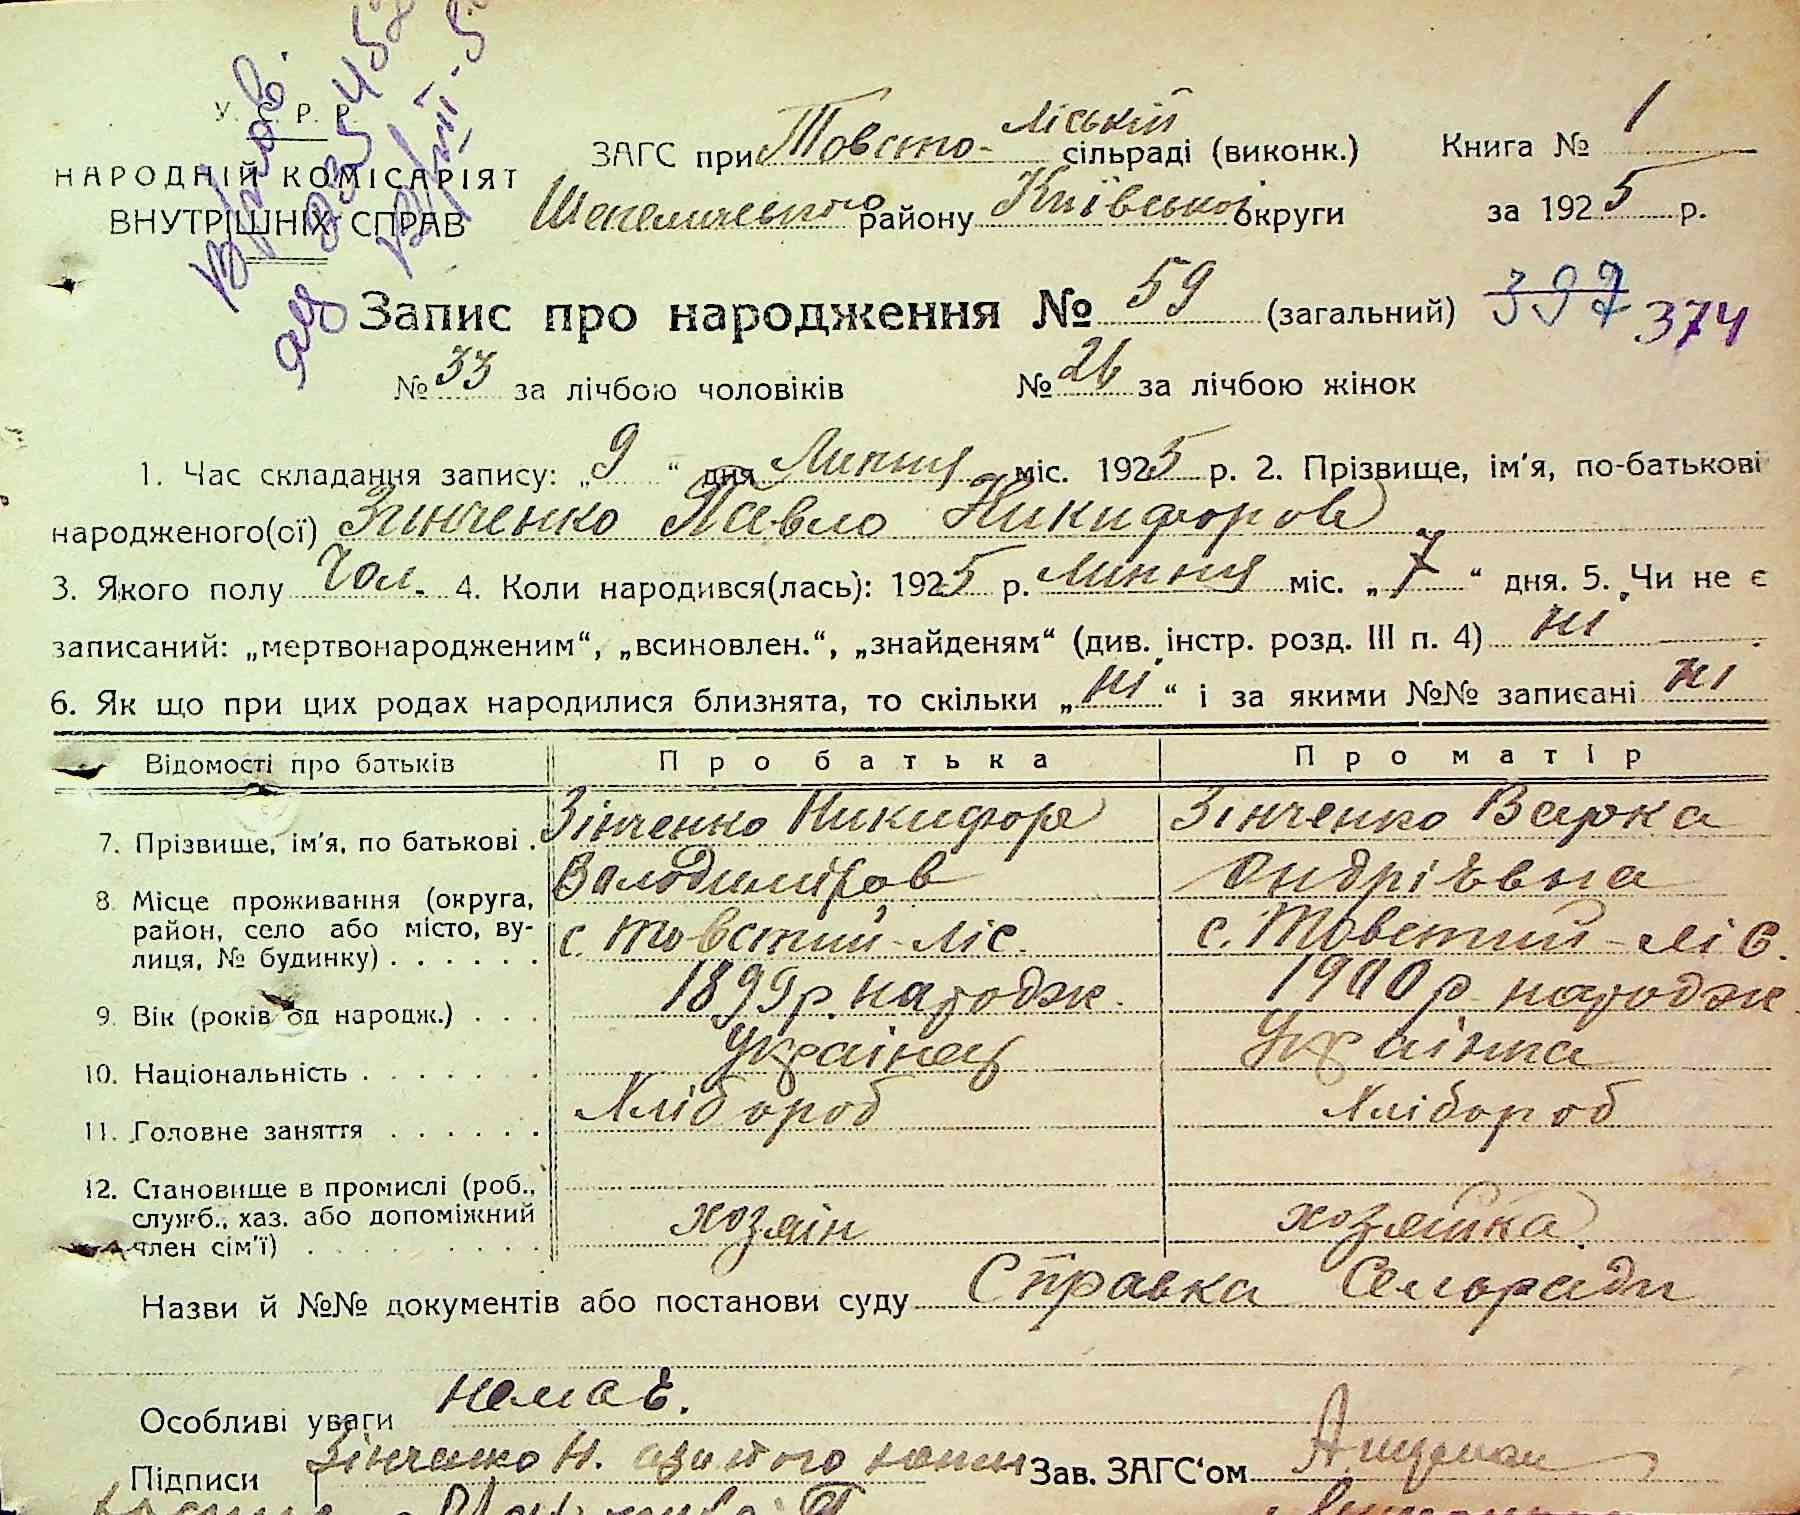 У. С. Р. Р.
НАРОДНІЙ КОМІСАРІЯТ
ВНУТРІШНІХ СПРАВ
ЗАГС при Товсто-ліській сільраді (виконк.)
Шепелического району Київської округи
Книга № 1
за 1925 р.
Запис про народження № 59 (загальний) 397 374
№ 33 за лічбою чоловіків № 26 за лічбою жінок
1. Час складання запису: „9“ дня Липня міс. 1925 р. 2. Прізвище, ім'я, по-батькові
народженого(ої) Зинченко Павло Никифоров
3. Якого полу Чол. 4. Коли народився(лась): 1925 р. Липня міс. „7“ дня. 5. Чи не є
записаний: „мертвонародженим“, „всиновлен.“, „знайденям“ (див. інстр. розд. III п. 4) ні
6. Як що при цих родах народилися близнята, то скільки „ні“ і за якими №№ записані ні
Відомості про батьків Про батька Про матір
7. Прізвище, ім'я, по батькові . Зінченко Никифор Зінченко Варка
Володиміров Андріѣвна
8. Місце проживання (округа,
район, село або місто, ву-
лиця, № будинку) . . . . . . с. Товстий-Ліс. с. Товстий-Ліс.
9. Вік (років од народж.) . . . 1899 р. народж. 1900 р. народж
10. Національність . . . . . . . Українец Українка
11. Головне заняття . . . . . . Хлібороб Хлібороб
12. Становище в промислі (роб.,
служб., хаз. або допоміжний
член сім'ї) . . . . . . . . . . хозяін хозяйка
Назви й №№ документів або постанови суду Справка Сельради
Особливі уваги немаѣ.
Підписи Зінченко Н. Зав. ЗАГС'ом